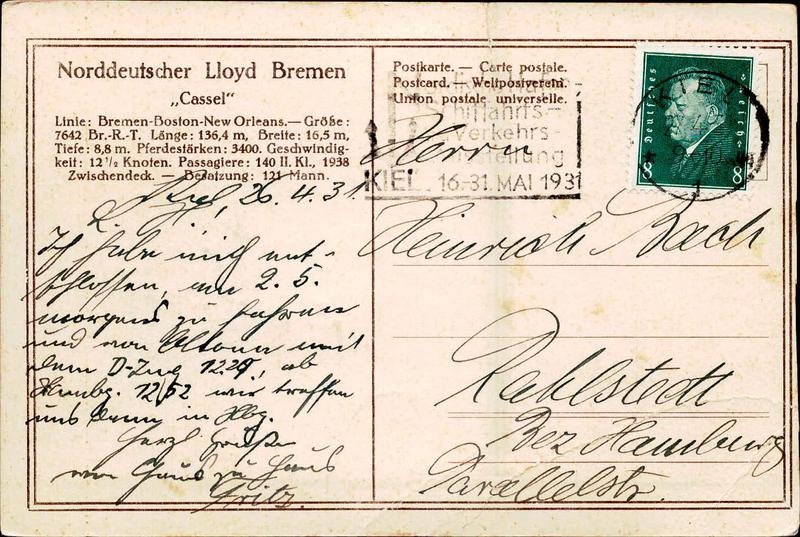 Norddeutscher Lloyd Bremen
„Cassel“
Linie: Bremen-Boston-New Orleans. — Größe:
7642 Br.-R.-T. Länge: 136,4 m, Breite: 16,5 m,
Tiefe: 8,8 m. Pferdestärken: 3400. Geschwindig-
keit: 12 1/2 Knoten. Passagiere: 140 II. Kl., 1938
Zwischendeck. — Besatzung: 121 Mann.
Kiel, 26.4.31.
Ich habe mich ent-
schlossen, am 2.5.
morgens zu fahren
und von Altona mit
dem D-Zug 12.29, ab
Hambg. 12/52 wir treffen
uns dann in Hbg.
Herzl Grüße
von Haus zu Haus
Fritz.
Postkarte. — Carte postale.
Postcard. — Weltpostverein.
Union postale universelle.
hiffahrts-
Verkehrs-
stellung
KIEL. 16.-31. MAI 1931
Deutsches Reich
8 8
KIEL
1
Herrn
Heinrich Bach
Rahlstedt
Bez Hamburg
Parallelstr.